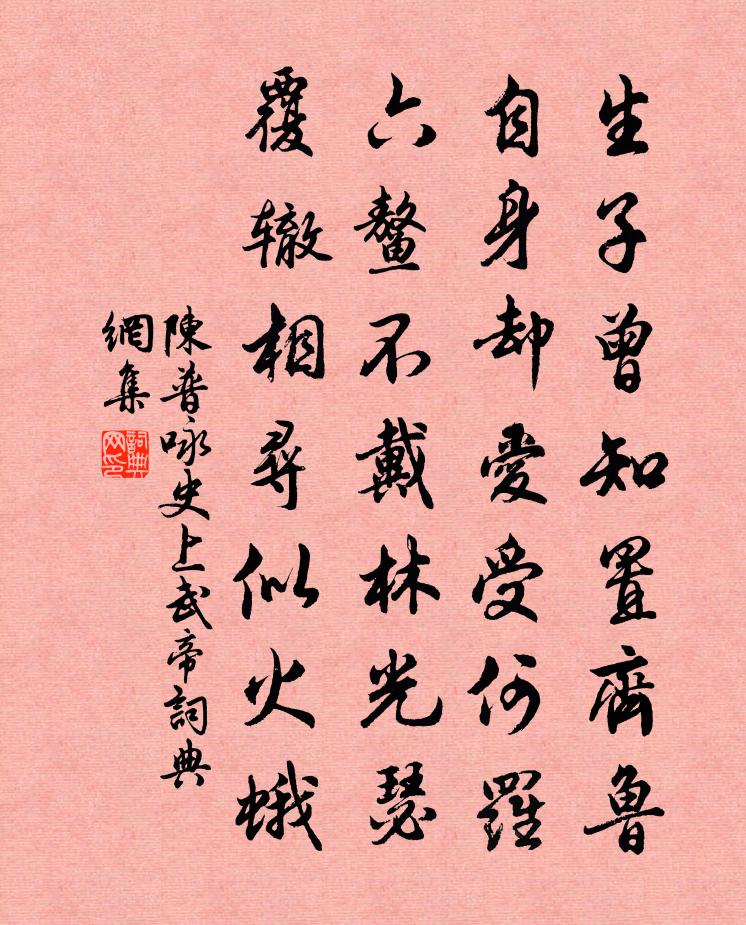 生子曾知置齊魯
自身却愛受何羅
六鰲不戴林光瑟
覆轍相尋似火蛾
陳普咏史上武帝詞典
網集
詞典網印